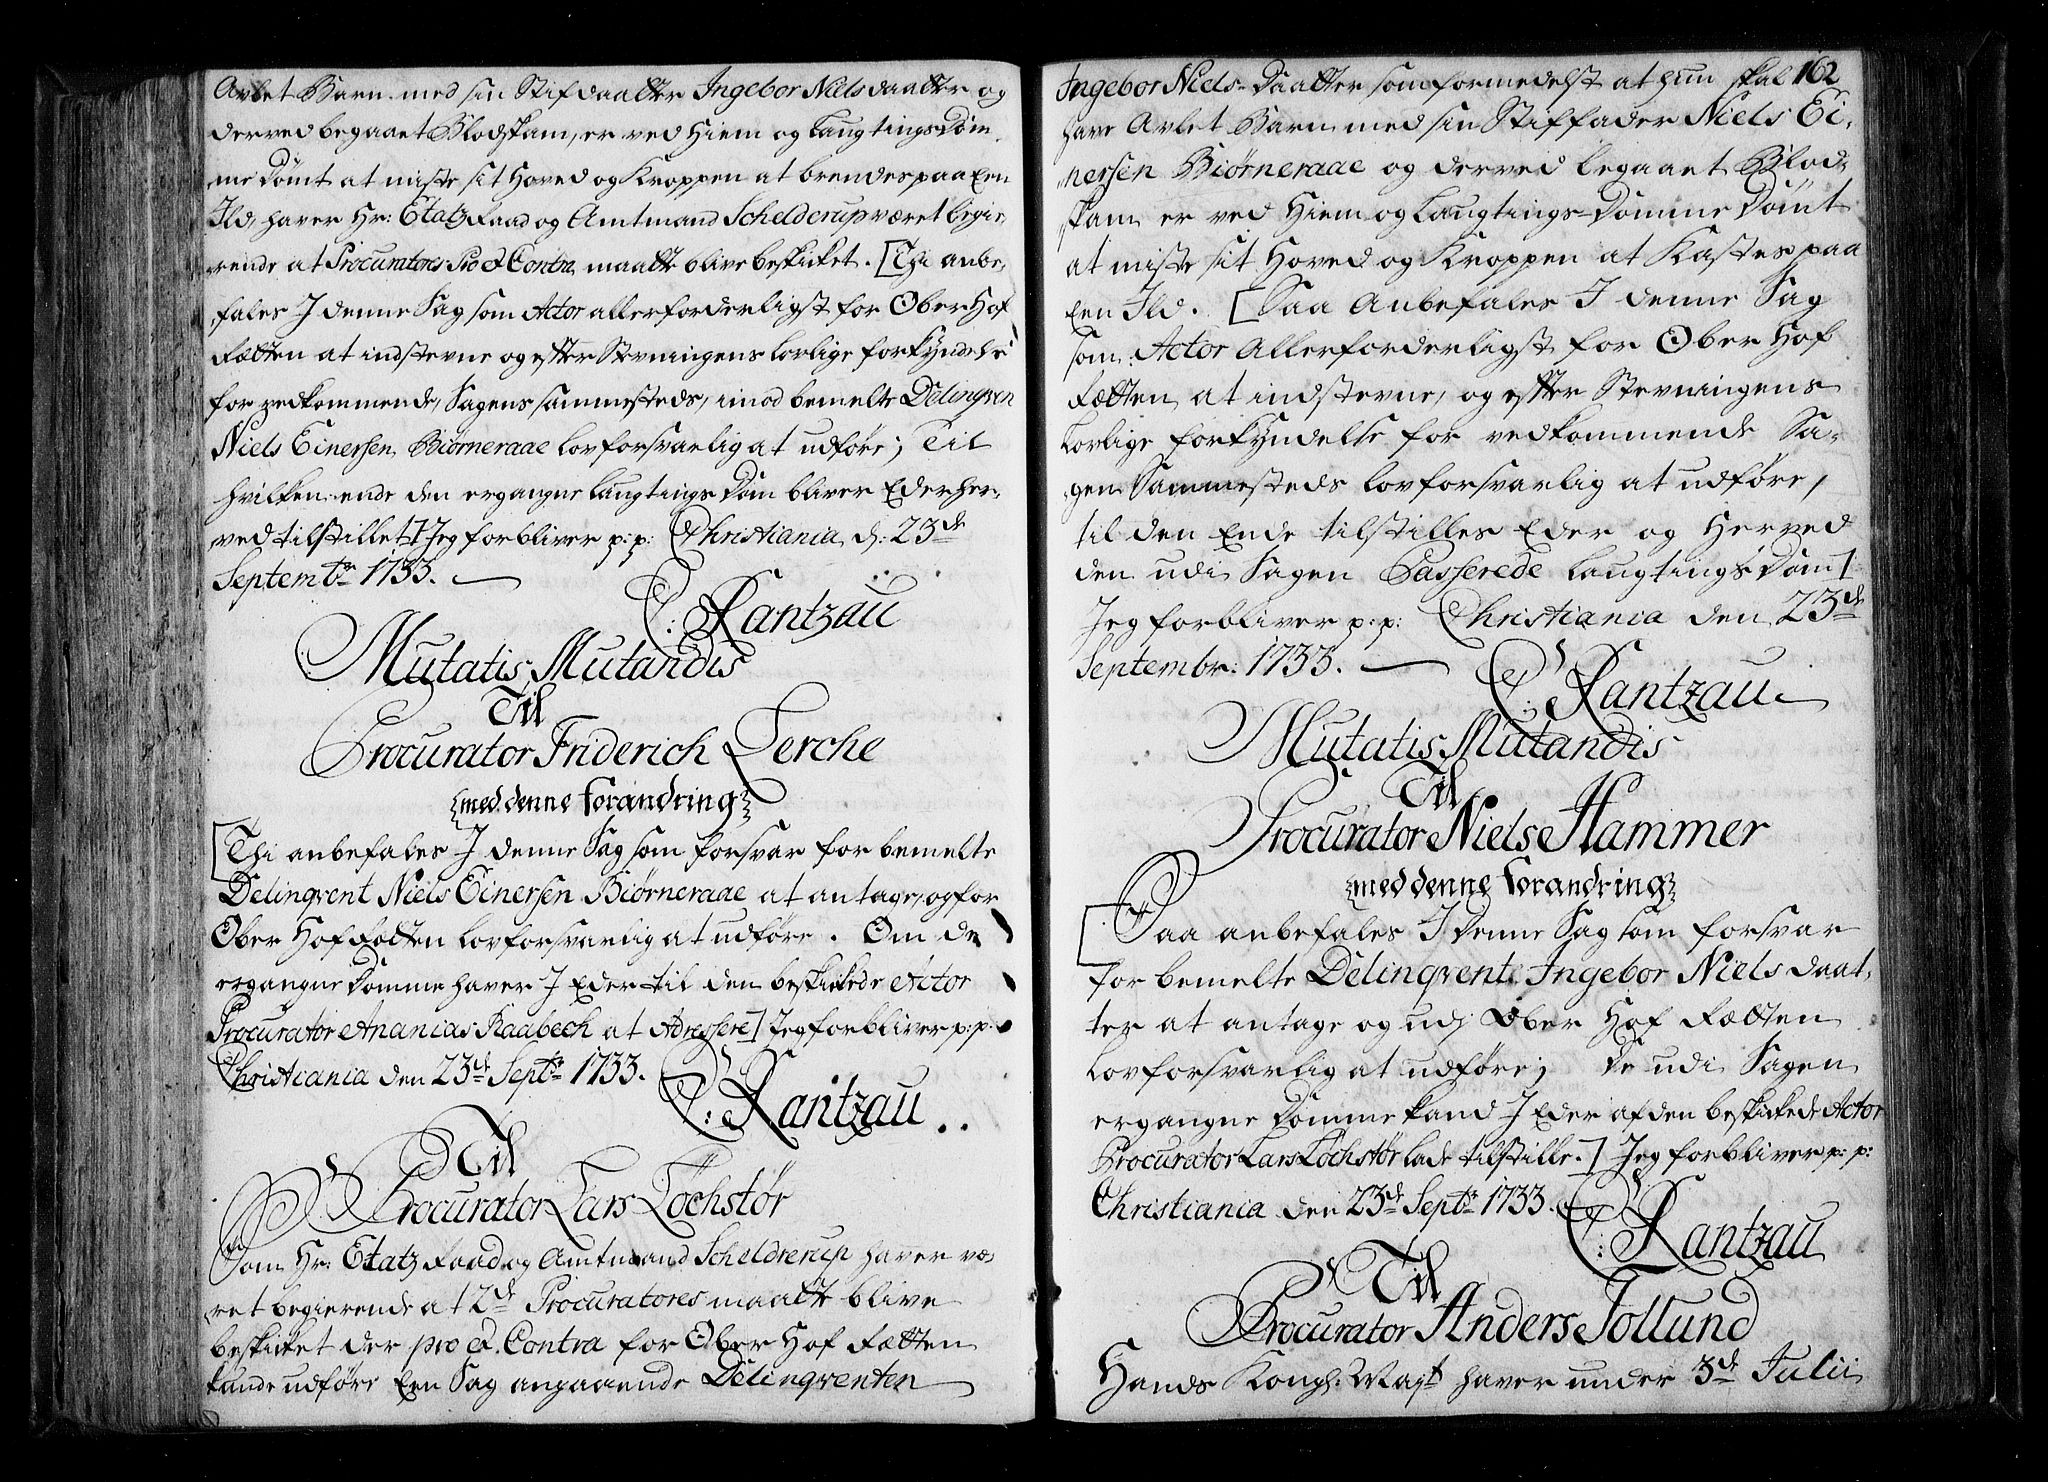 Avlet Barn med sin Stifdaatter Ingebor Nielsdaatter og
derved begaaet Blodskam, er ved Hiem og Laugtings Døm-
me Dømt at miste sit Hoved og Kroppen at brendes paa Een
Ild, haver Hr: Etatz Raad og Amtmand Schelderup været begie-
rende at Procuratores Pro & Contra maatte blive beskicket. [Thi anbe-
fales I denne Sag som Actor allerforderligst for Ober Hof
Rætten at indstevne og efter Stevningens lovlige forkyndelse
for vedkommende, Sagens sammesteds, imod bemelte Delinqven
Niels Einersen Biørneraae lovforsvarlig at udføre; Til
hvilken ende den ergangne Laugtings Dom bliver Eder her-
ved tilstillet] Jeg forbliver p: p: Christiania d: 23de
Septembr 1733.
C: Rantzau
Mutatis Mutandis
Til
Procurator Friderich Lerche
{med denne forandring}
[Thi anbefales I denne Sag som forsvar for bemelte
Delinqvent Niels Einersen Biørneraae at antage, og for
Ober Hof Rætten lovforsvarlig at udføre. Om de
ergangne Domme haver I Eder til den beskickede Actor
Procurator Ananias Raabech at Adressere] Jeg forbliver p: p:
Christiania den 23de Septr 1733.
C: Rantzau
Til
Procurator Lars Löchstør
Som Hr: Etatz Raad og Amtmand Scheldrerup haver væ-
ret begierende at 2de Procuratores maatte blive
beskicket der pro & Contra for Ober Hof Rætten
kunde udføre Een Sag angaaende Delinqventen
162
Ingebor Niels-Daatter som formedelst at hun skal
have Avlet Barn med sin Stiffader Niels Ei-
nersen Biørneraae og derved begaaet Blod-
skam er ved Hiem og Laugtings-Domme Dømt
at miste sit Hoved og Kroppen at Kastes paa
Een Ild. [Saa Anbefales I denne Sag
som Actor Allerforderligst for Ober Hof
Rætten at indstevne, og efter Stevningens
Lovlige forkyndelse for vedkommende Sa-
gen Sammesteds lovforsvarlig at udføre,
til den Ende tilstilles Eder og Herved
den udi Sagen Passerede Laugtings Dom]
Jeg forbliver p: p: Christiania den 23de
Septembr: 1733.
C: Rantzau
Mutatis Mutandis
Til
Procurator Niels Hammer
{med denne forandring}
[Saa anbefales I Denne Sag som forsvar
for bemelte Delinqvente Ingebor Nielsdaat-
ter at antage og udj Ober Hof Rætten
Lovforsvarlig at udføre; De udi Sagen
ergangne Domme kand I Eder af den beskickede Actor
Procurator Lars Löchstør lade tilstille.] Jeg forbliver p: p:
Christiania den 23de Septr 1733.
C: Rantzau
Til
Procurator Anders Tollund
Hands Kongl: Mayt haver under 3de Julii